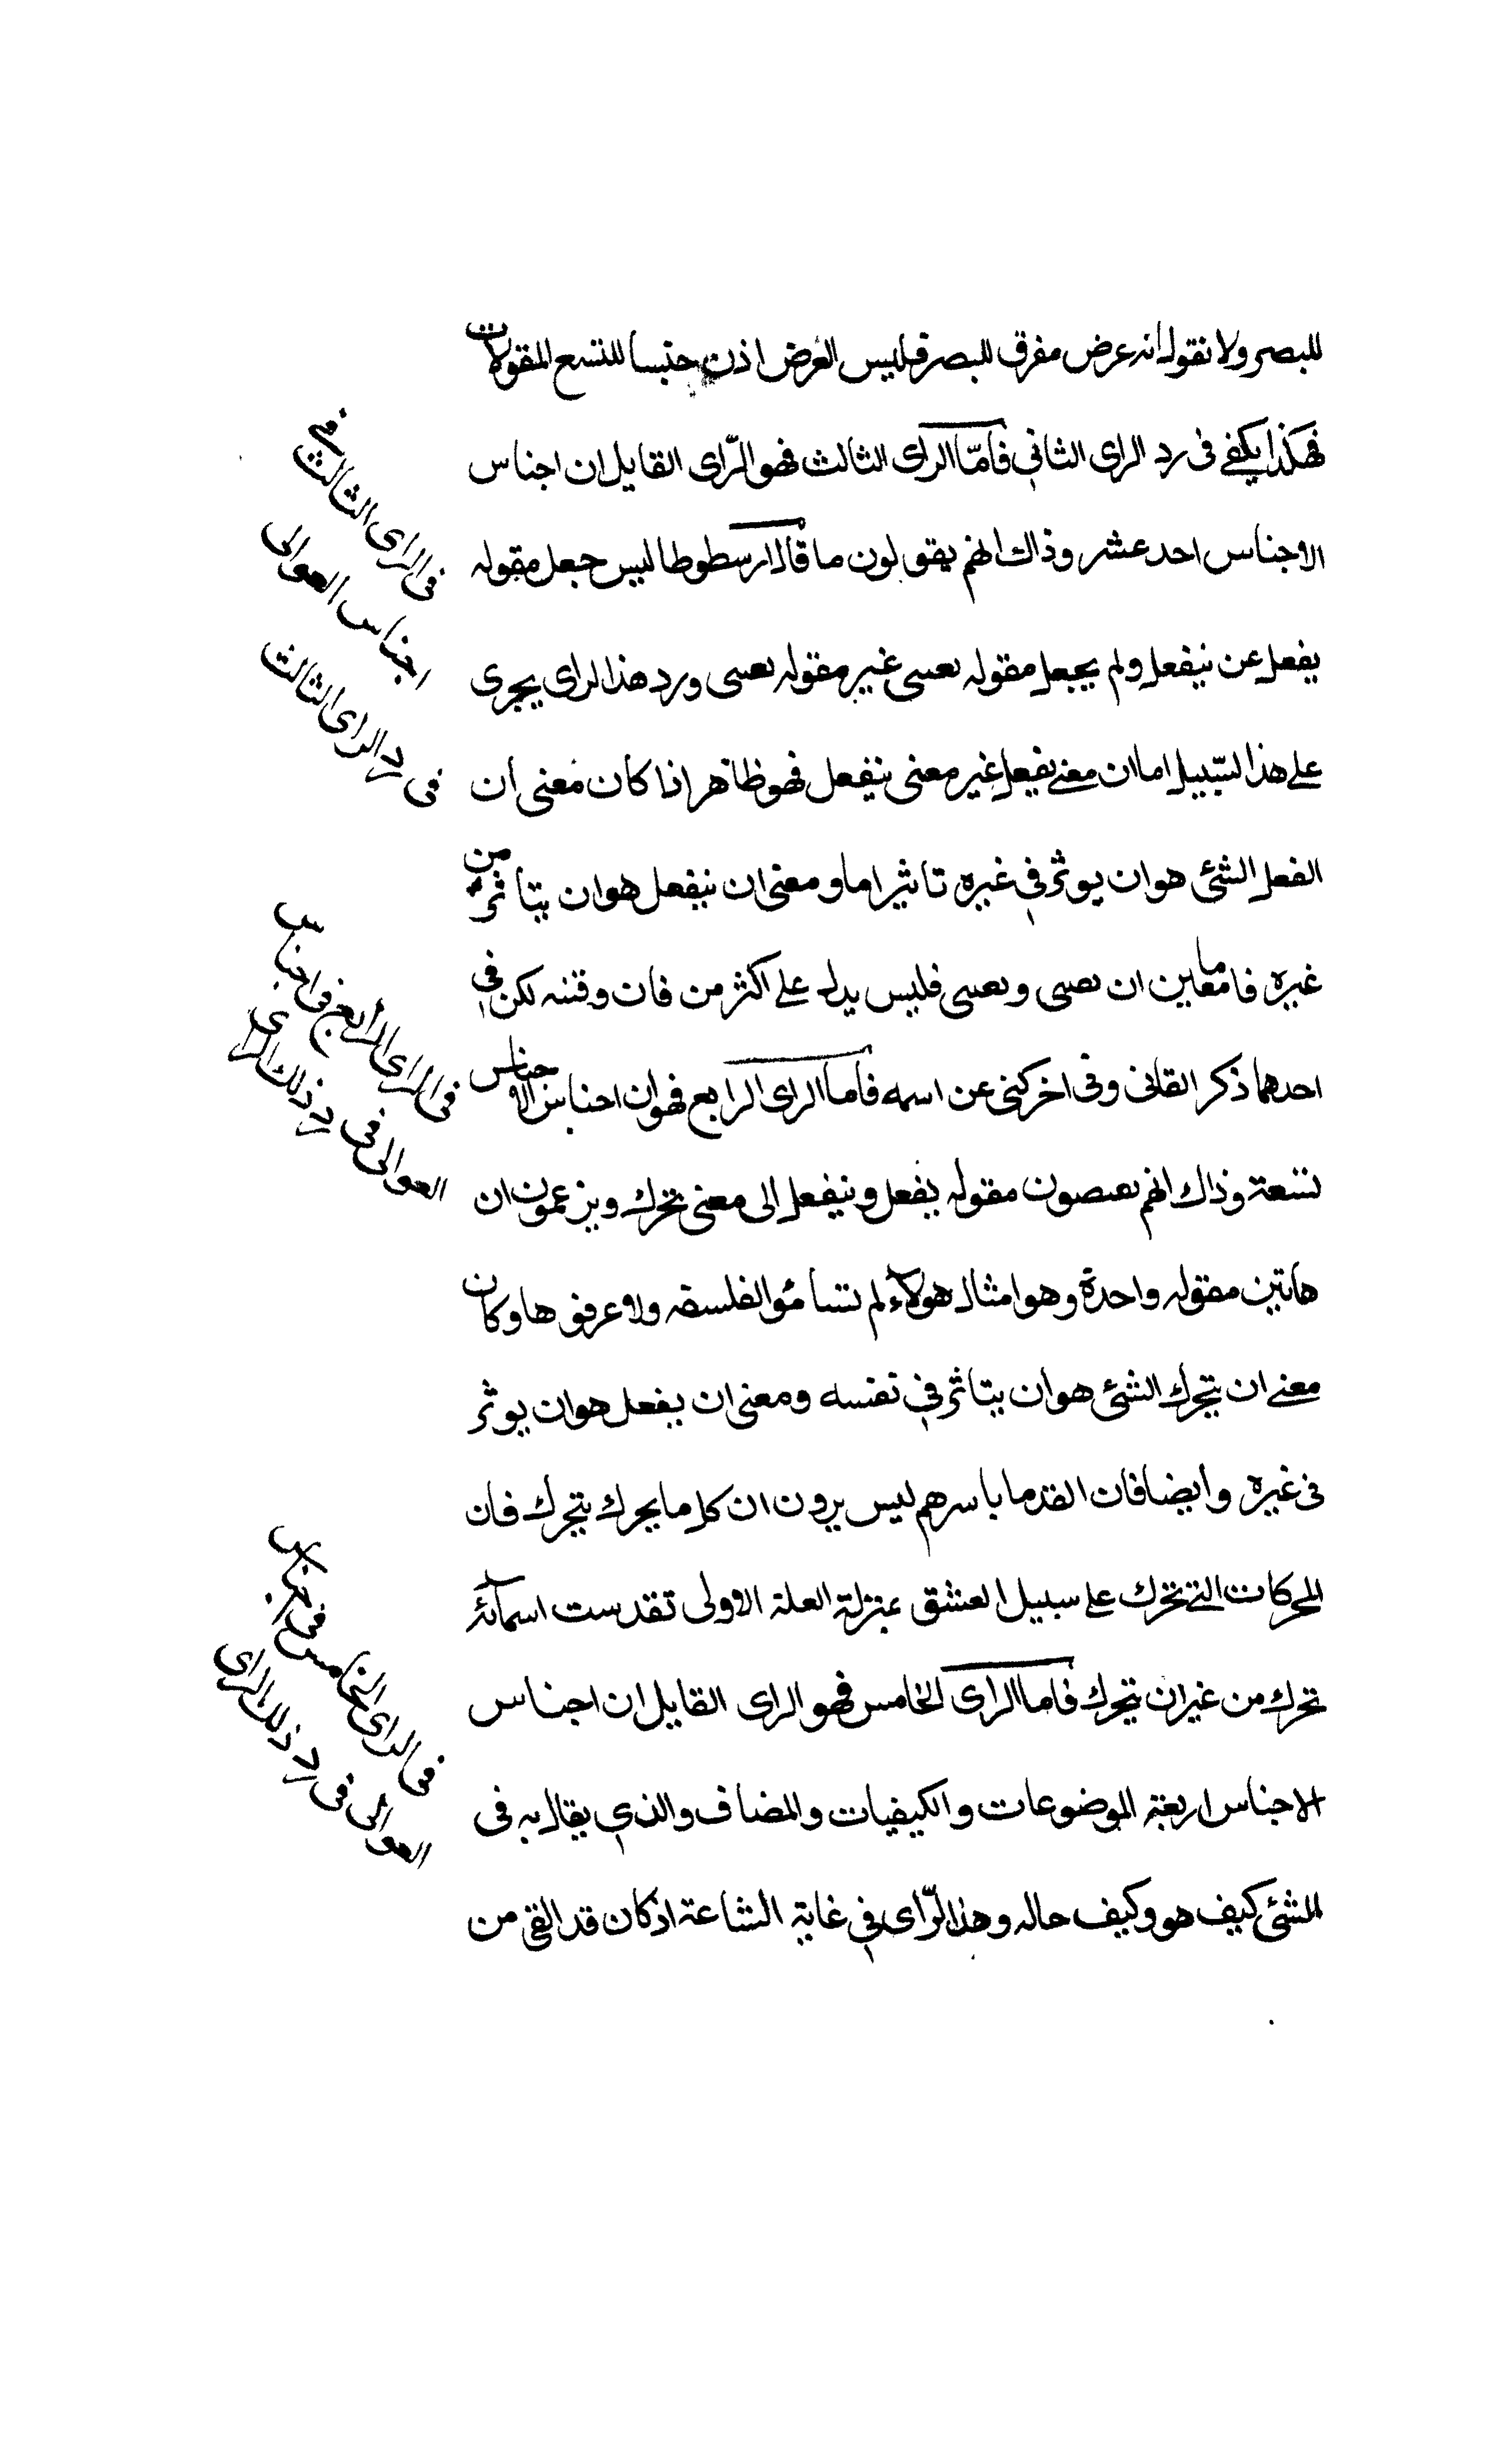 للبصر ولا نقول انه عرض مفرق للبصر فليس العرض اذن جنسا للتسع المقولات
فهكذا يكفي فى رد الراى الثانى فأمّا الراى الثالث فهو الرّاى القايل ان اجناس
الاجناس احد عشر وذاك انهم يقولون ما قال ارسطوطاليس جعل مقوله
يفعل عن ينفعل ولم يجعل مقوله غير مقوله ورد هذا الراى يجرى
على هذا السّبيل اما ان معنى يفعل غير معنى ينفعل فهو ظاهر اذا كان معنى ان
الفعل الشئ هو ان يوثر في غيره تاثيرا ما ومعنى ان ينفعل هو ان يتاثر من
غيره فاما ان فليس يدل على اكثر من لكن في
احدهما ذكر وفى اخر كنى عن اسمه فأما الراى الرابع فهو ان اجناس الاجناس
تسعة وذاك انهم مقوله يفعل وينفعل الى معنى يتحرك ويزعمون ان
هاتين مقوله واحدة وهو امثال هولاء لم الفلسفه ولا عرفوها وكان
معنى ان يتحرك الشئ هو ان يتاثر في نفسه ومعنى ان يفعل هو ان يوثر
فى غيره وايضا فان القدما باسرهم ليس يرون ان كل ما يحرك يتحرك فان
المحركات التى تحرك على سبيل العشق بمنزلة العلة الاولى تقدست اسمائه
تحرك من غير ان يتحرك فاما الراى الخامس فهو الراى القايل ان اجناس
الاجناس اربعة الموضوعات والكيفيات والمضاف والذي يقال به فى
الشئ كيف هو وكيف حاله وهذا الرّاى في غاية الشناعة اذ كان قد القى من
فى الراى الثالث في
اجناس العوالى
فى رد الراى الثالث
فى الراى الرابع فى اجناس
العوالى فى رد ذلك الراى
فى الراى الخامس فى اجناس
العوالى فى رد ذلك الراى